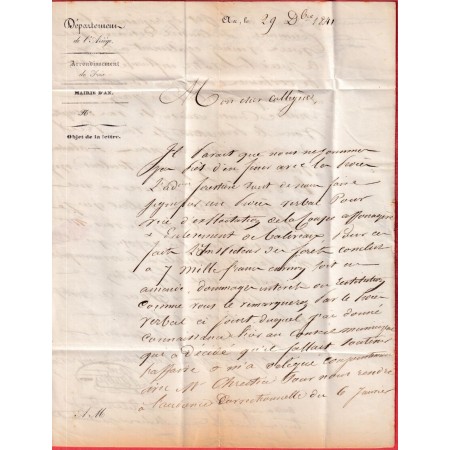 Département
de l'Ariège.
Arrondissement
de Foix
MAIRIE D'AX.
N°
Objet de la lettre.
Ax, le 29 Xbre 1841
Mon cher collègue,
Il parait que nous ne sommes
pas prêt d'en finir avec les
forestiere vient de nous faire
un procès verbal pour
d'exploitation de la coupe affouagère
Enlevement de Baliveaux Pour ce
fait L'Inspecteur des forêts conclut
a 7 mille francs environ soit en
amende, dommages interets ou restitution
comme vous le remarquerez par le procès
verbal ci joint duquel j'ai donné
connaissance hier au conseil municipal
qui a décidé qu'il fallait soutenir
l'affaire & m'a délégué
avec Mr Chrestia pour nous rendre
a l'audience correctionnelle du 6 Janvier
A M